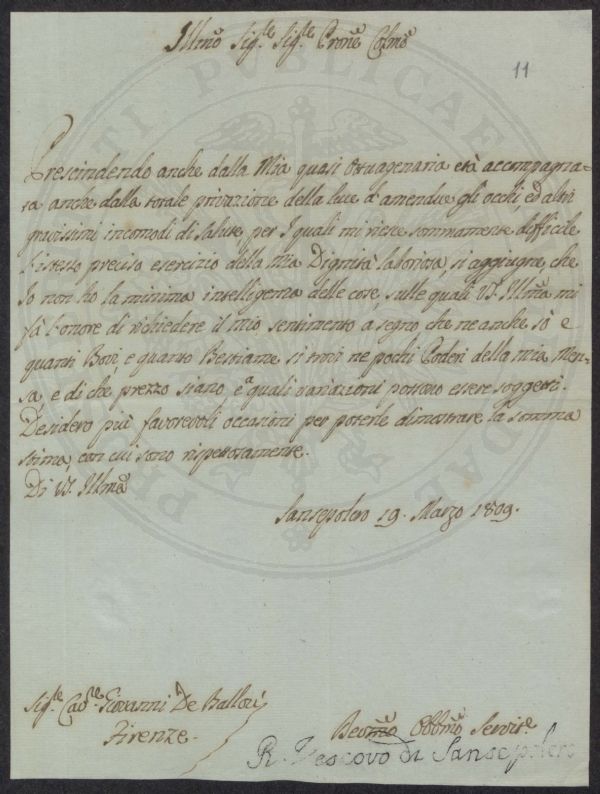 Illmo Sig.re Sig.re Prone Colmo
11
Prescindendo anche dalla Mia quasi Ottuagenaria età accompagna=
ta anche dalla totale privazione della luce d'amendue gli occhi, ed altri
gravissimi incomodi di salute, per I quali mi viene sommamente difficile
l'istesso preciso esercizio della Mia Dignità laboriosa, si aggiugne, che
Io non ho la minima intelligenza delle cose, sulle quali V.S. Illma mi
fà l'onore di richiedere il mio sentimento a segno, che ne anche sò e
quanti Bovi, e quanto Bestiame si trovi ne pochi Poderi della mia Men-
sa, e di che prezzo siano, e a quali variazioni possono essere soggetti.
Desidero più favorevoli occasioni per poterle dimostrare la somma
stima, con cui sono rispettosamente.
Di V.S. Illma
Sansepolcro 19. Marzo 1809.
Sig.re Cav.re Giovanni De Baillou
Firenze.
Devmo Obbmo Servit.e
R. Vescovo di Sansepolcro
PUBLICAE